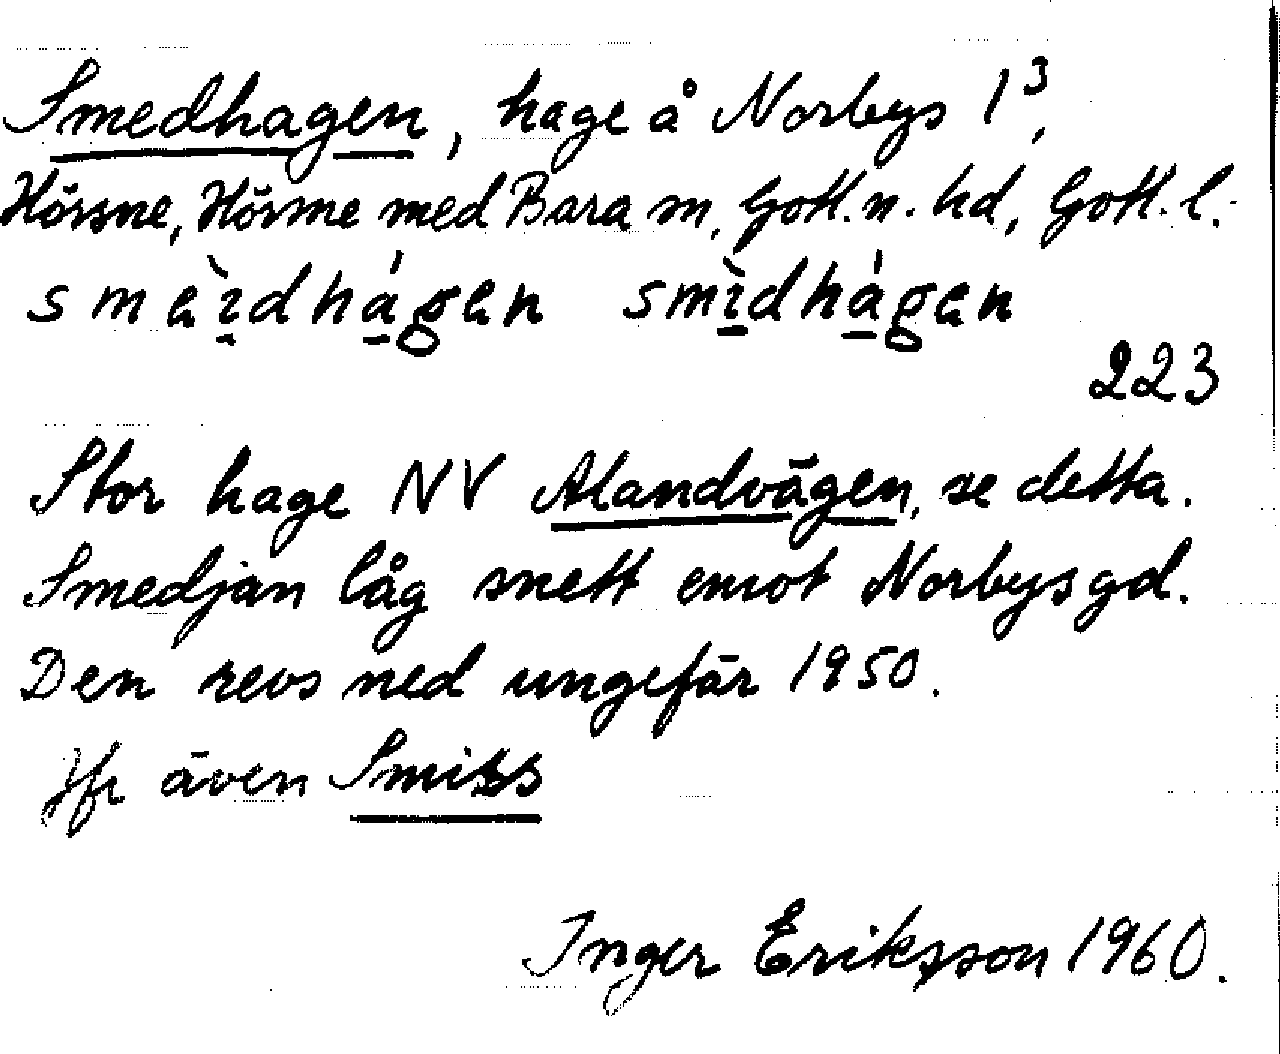 Smedhagen, hage å Norbys 1³,
Hörsne, Hörsne med Bara sn, Gotl. n. hd, Gotl. l.
smèi̱dhá̱gen smì̱dhá̱gen
223
Stor hage NV Alandvägen, se detta.
Smedjan låg snett emot Norbys gd.
Den revs ned ungefär 1950.
Jfr även Smiss
Inger Eriksson 1960.